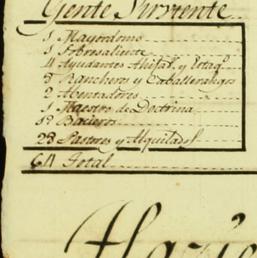 Gente Sirviente
1 Mayordomo
1 Sobresaliente
4 Ayudantes
5 Rancheros y Caballerangos
2 Aventadores
1 Maestro de Doctrina
Bacieros
28 Pastores y Alquilados
64 Total